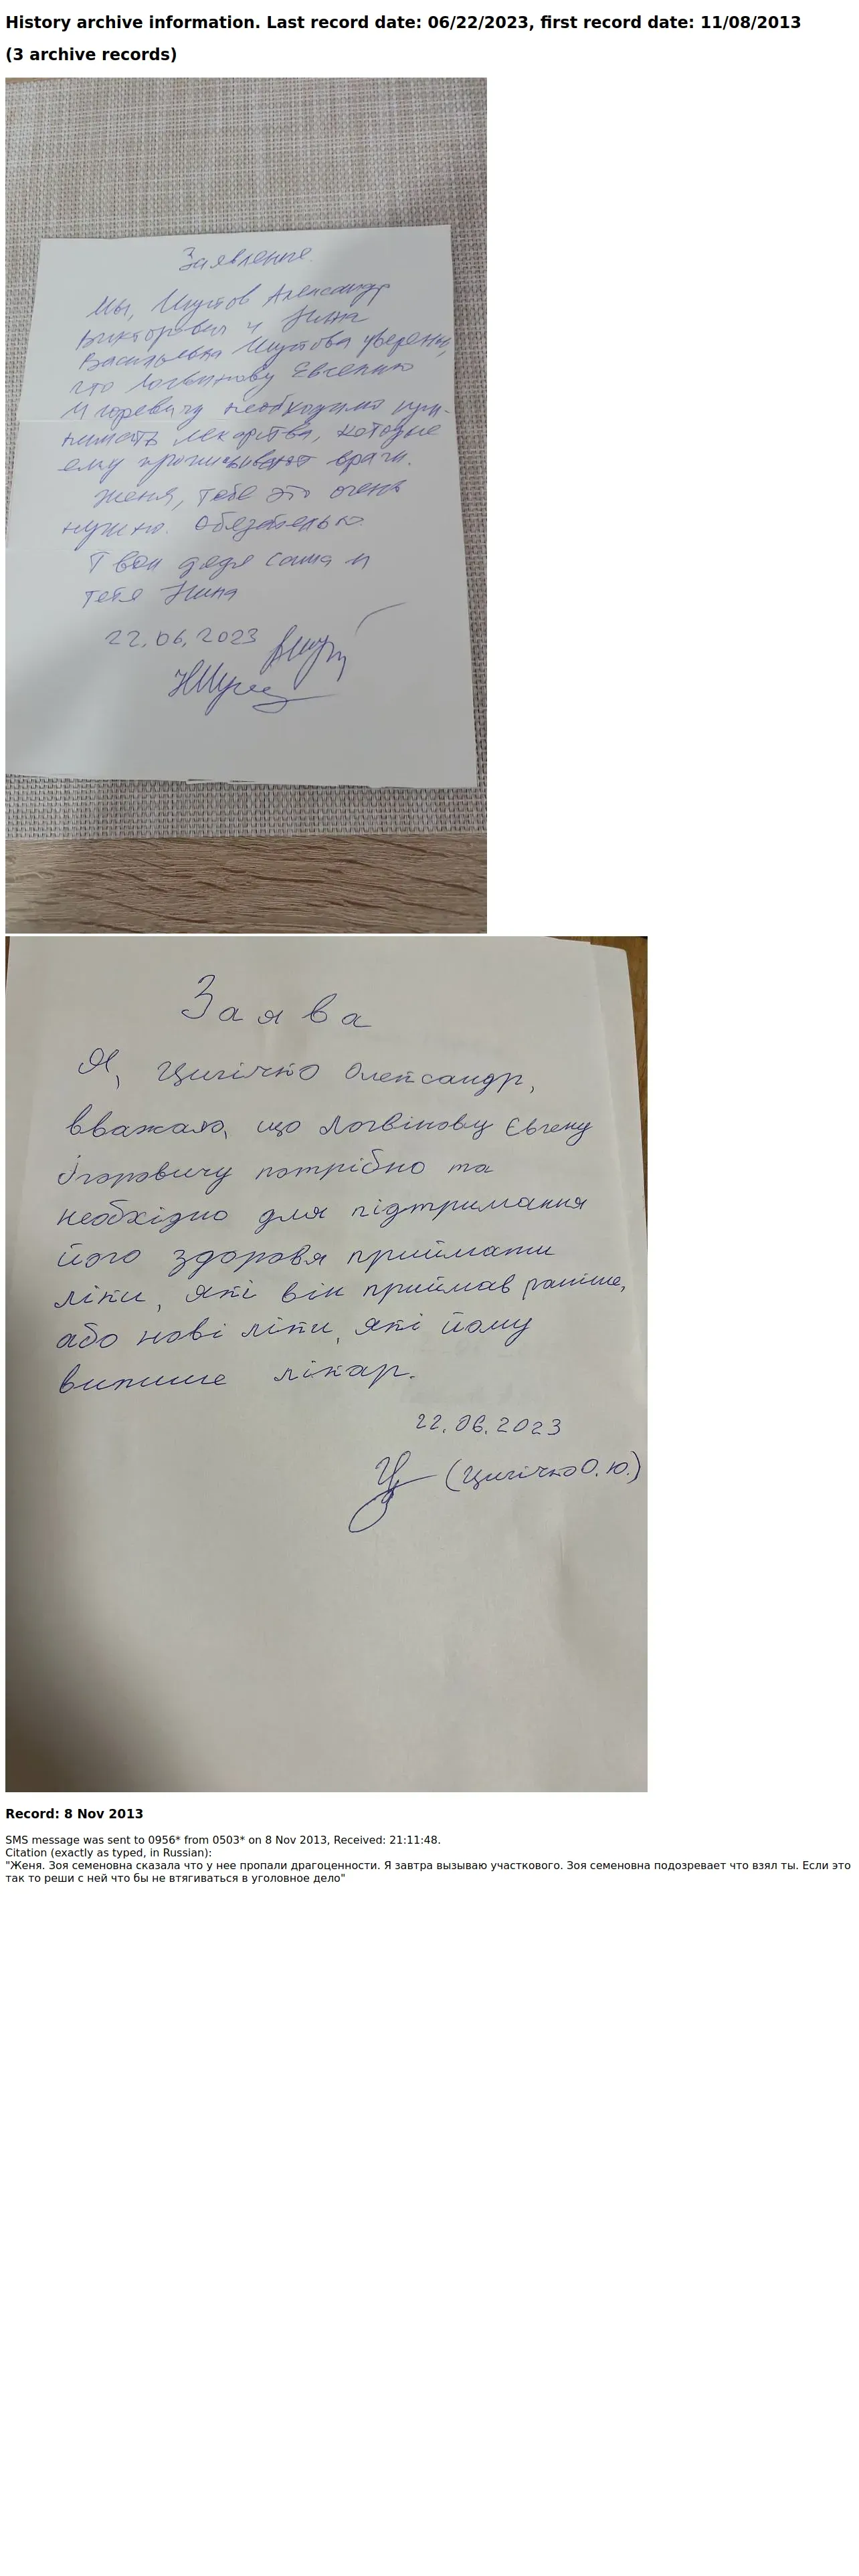 History archive information. Last record date: 06/22/2023, first record date: 11/08/2013
(3 archive records)
Заявление.
Мы, Шутов Александр
Викторович и Нина
Васильевна Шутова уверены,
что Логвинову Евгению
Игоревичу необходимо при-
нимать лекарства, которые
ему прописывают врачи.
Женя, тебе это очень
нужно. Обязательно
Твои дядя Саша и
тетя Нина
22.06.2023
Заява
Я, Цигічко Олександр,
вважаю, що Логвінову Євгену
Ігоровичу потрібно та
необхідно для підтримання
його здоровя приймати
ліки, які він приймав раніше,
або нові ліки, які йому
випише лікар.
22.06.2023
(Цигічко О. Ю.)
Record: 8 Nov 2013
SMS message was sent to 0956* from 0503* on 8 Nov 2013, Received: 21:11:48.
Citation (exactly as typed, in Russian):
"Женя. Зоя семеновна сказала что у нее пропали драгоценности. Я завтра вызываю участкового. Зоя семеновна подозревает что взял ты. Если это
так то реши с ней что бы не втягиваться в уголовное дело"